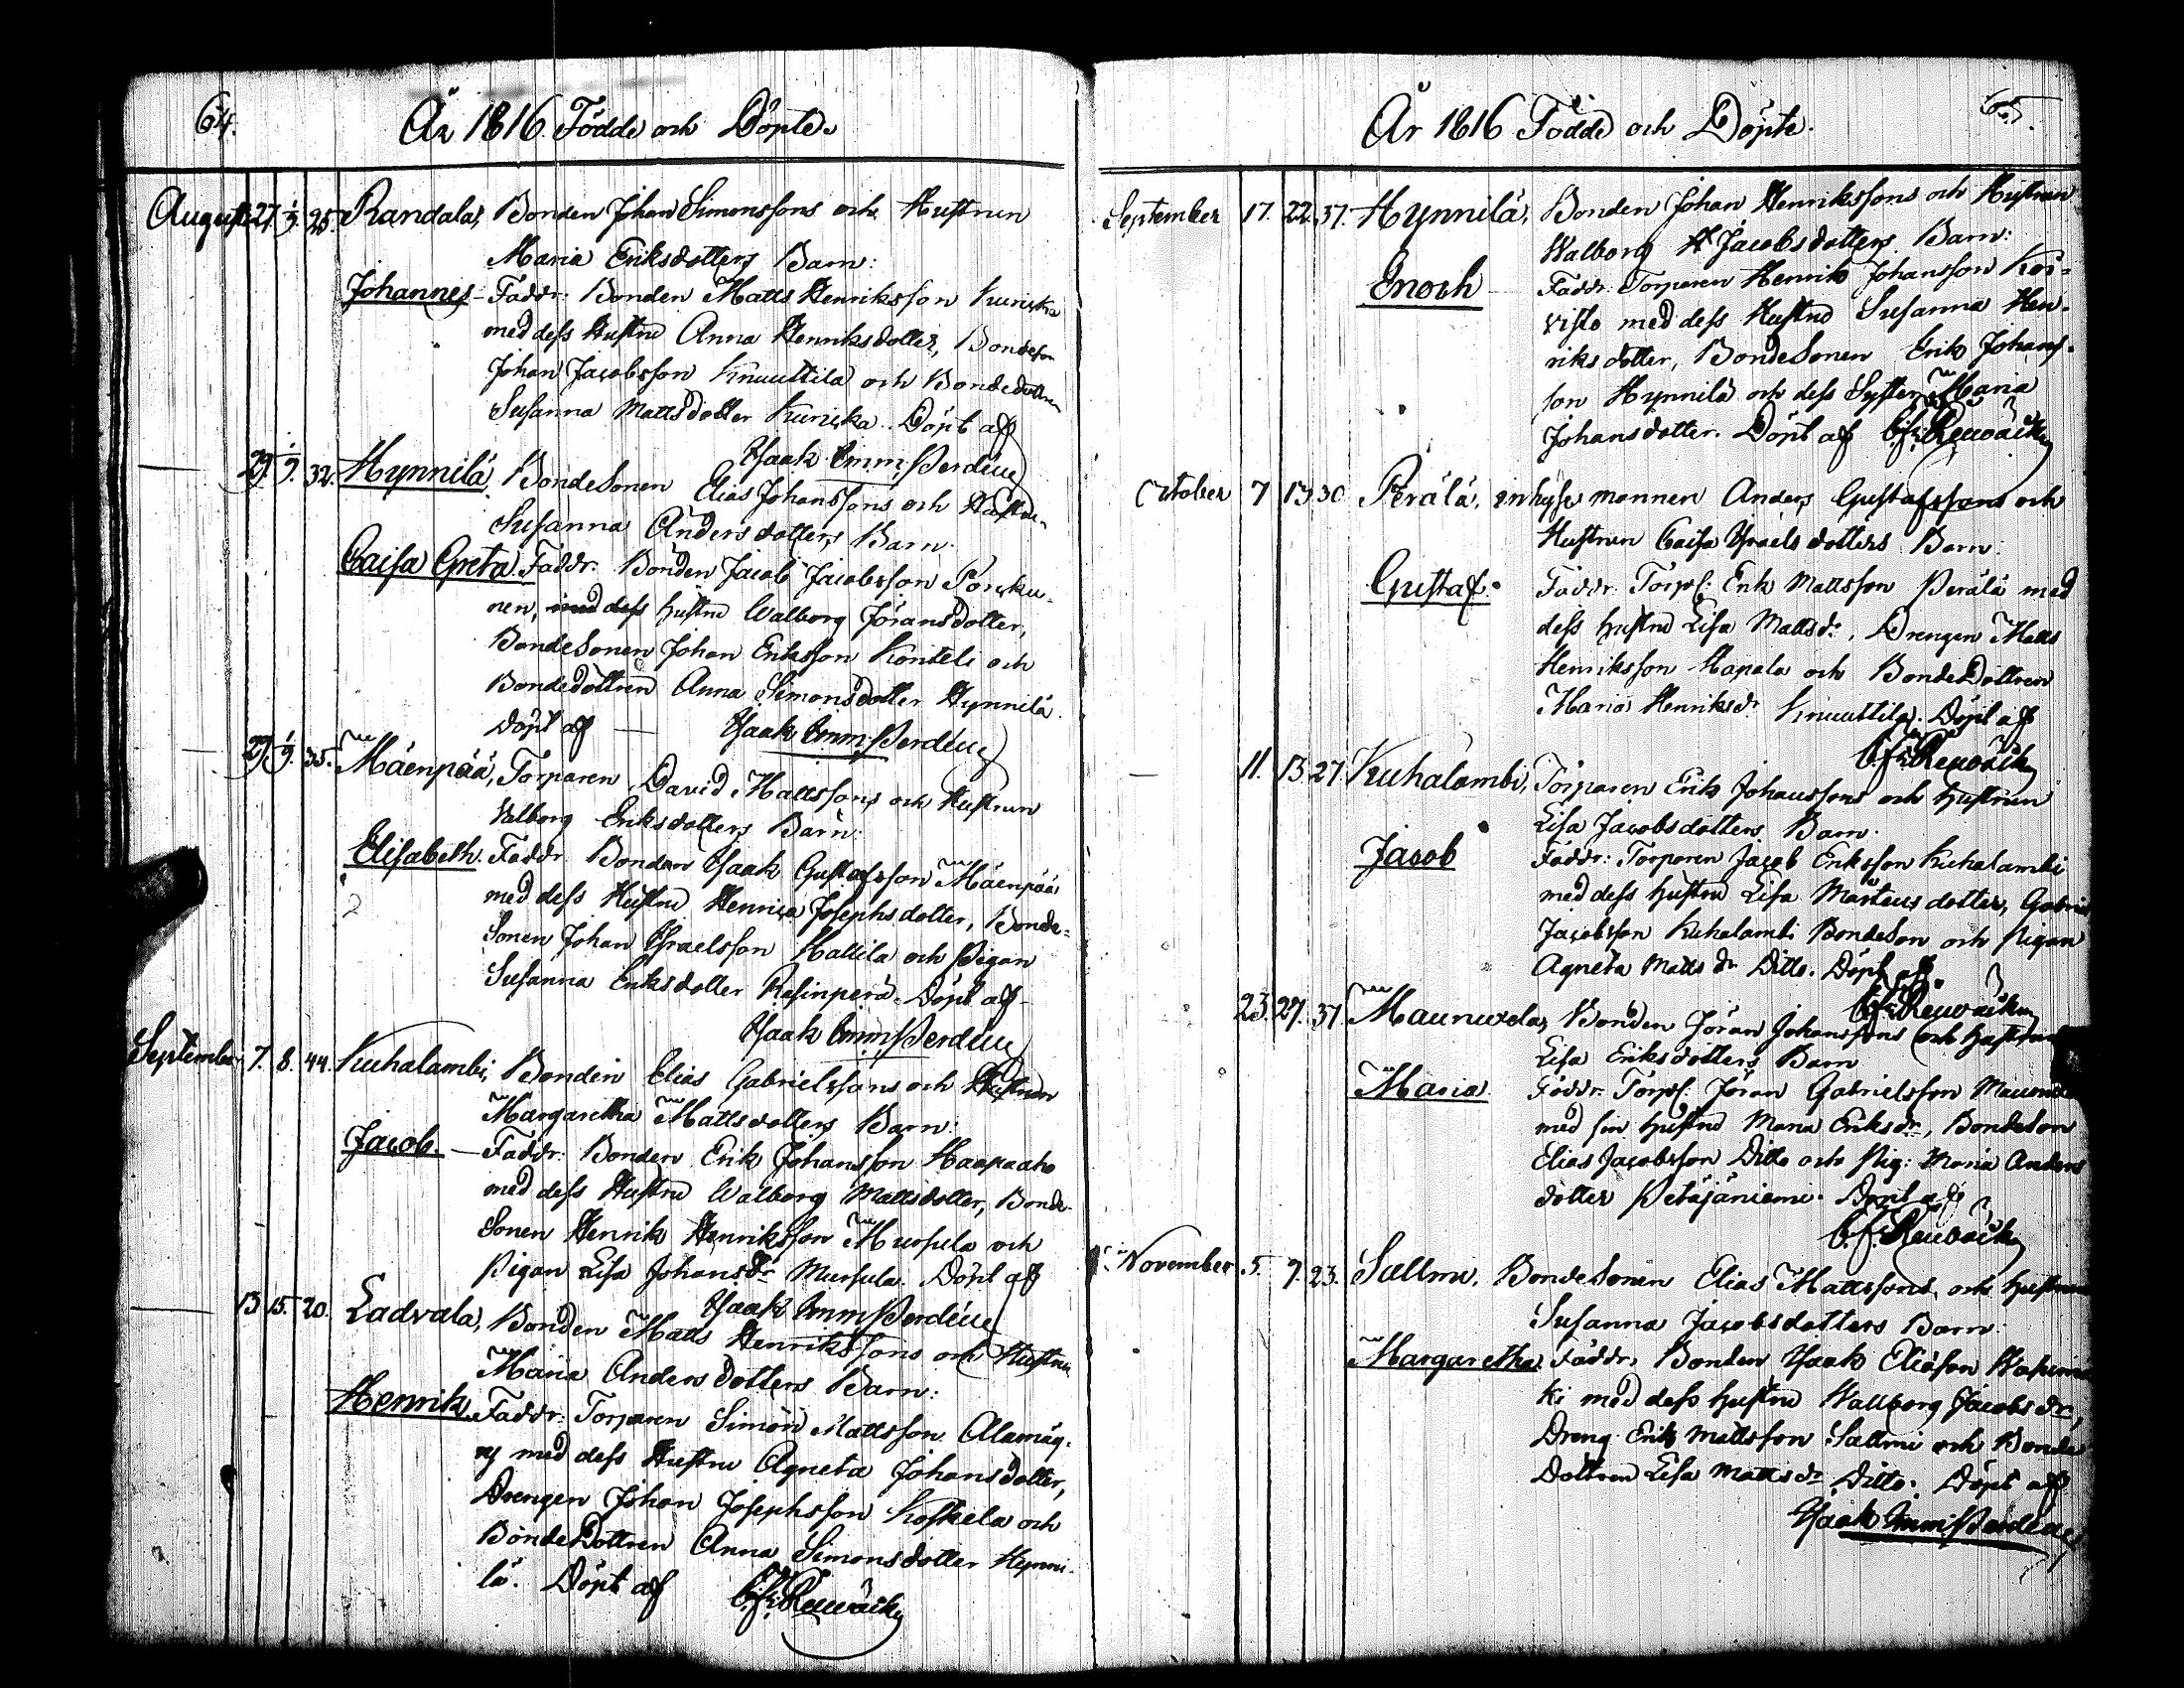 64.
År 1816 Födde och Döpte.
Augusti 27. 1/9. 25. Randala, Bonden Johan Simonssons och Hustrun
Maria Eriksdotters Barn:
Johannes Faddr: Bonden Matts Henriksson Kuricka
med dess Hustru Anna Henriksdotter, Bondeson
Johan Jacobsson Knuuttila och Bondedottren
Susanna Mattsdotter Kuricka. Döpt af
Isaak Emm: Perdén
29. 1/9. 32. Hynnilä, BondeSonen Elias Johanssons och Hustrun
Susanna Andersdotters Barn.
Caisa Greta. Faddr. Bonden Jacob Jacobsson Porsku-
nen, med dess hustru Walborg Göransdotter,
BondeSonen Johan Eriksson Konteli och
Bondedottren Anna Simonsdotter Hynnilä.
Döpt af Isaak Emm: Perdén
29. 1/9. 35. Mäenpää, Torparen David Mattssons och Hustrun
Valborg Eriksdotters Barn:
Elisabeth. Faddr. Bonden Isaak Gustafsson Mäenpää
med dess Hustru Henrica Josephsdotter, Bonde-
Sonen Johan Israelsson Mattila och Pigan
Susanna Eriksdotter Rasinperä. Döpt af
Isaak Emm: Perdén
September 7. 8. 44. Kuhalambi, Bonden Elias Gabrielssons och Hustrun
Margaretha Mattsdotters Barn:
Jacob. Faddr: Bonden Erik Johansson Haapaaho
med dess Hustru Walborg Mattsdotter, Bonde-
Sonen Henrik Henriksson Mursula och
Pigan Lisa Johansdr Mursula. Döpt af
Isaak Emm: Perdén
13. 15. 20. Ladvala, Bonden Matts Henrikssons och Hustrun
Maria Andersdotters Barn:
Henrik. Faddr: Torparen Simon Mattsson Alamäg-
med dess Hustru Agneta Johansdotter,
Drengen Johan Josephsson Koskela och
BondeDottren Anna Simonsdotter Hynni-
lä. Döpt af
65.
År 1816 Födde och Döpte.
September 17. 22. 37. Hynnilä, Bonden Johan Henrikssons och Hustrun
Walborg Jacobsdotters Barn:
Enoch Faddr. Torparen Henrik Johansson Koi-
visto med dess Hustru Susanna Hen-
riksdotter, BondeSonen Erik Johans-
son Hynnilä och dess Syster Maria
Johansdotter. Döpt af
October 7 13. 30. Perälä, inhyses mannen Anders Gustafssons och
Hustrun Caisa Israelsdotters Barn.
Gustaf. Faddr: Torps: Erik Mattsson Perälä med
dess hustru Lisa Mattsdr, Drengen Matts
Henriksson Hapala och BondeDottren
Maria Henriksdr Knuuttila. Döpt af
11. 13. 27. Kuhalambi, Torparen Erik Johanssons och hustrun
Lisa Jacobsdotters Barn.
Jacob Faddr: Torparen Jacob Eriksson Kuhalambi
med dess hustru Lisa Mårtensdotter, Gabriel
Jacobsson Kuhalambi BondeSon och Pigan
Agneta Mattsdr Ditto. Döpt af
23. 27. 37. Maunuxela, Bonden Jöran Johanssons och hustrun
Lisa Eriksdotters Barn
Maria. Faddr. Torps: Jöran Gabrielsson
med sin hustru Maria Eriksdr, BondeSon
Elias Jacobsson Ditto och Pig: Maria Anders
dotter Petäjäniemi. Döpt af
November 5. 7. 23. Sallmi, BondeSonen Elias Mattssons och hustrun
Susanna Jacobsdotters Barn:
Margaretha. Faddr. Bonden Isaak Eliasson
ki med dess hustru Wallborg Jacobsdr,
Dreng Erik Mattsson Sallmi och Bonde
Dottren Lisa Mattsdr Ditto. Döpt af
Isaak Emm: Perdén